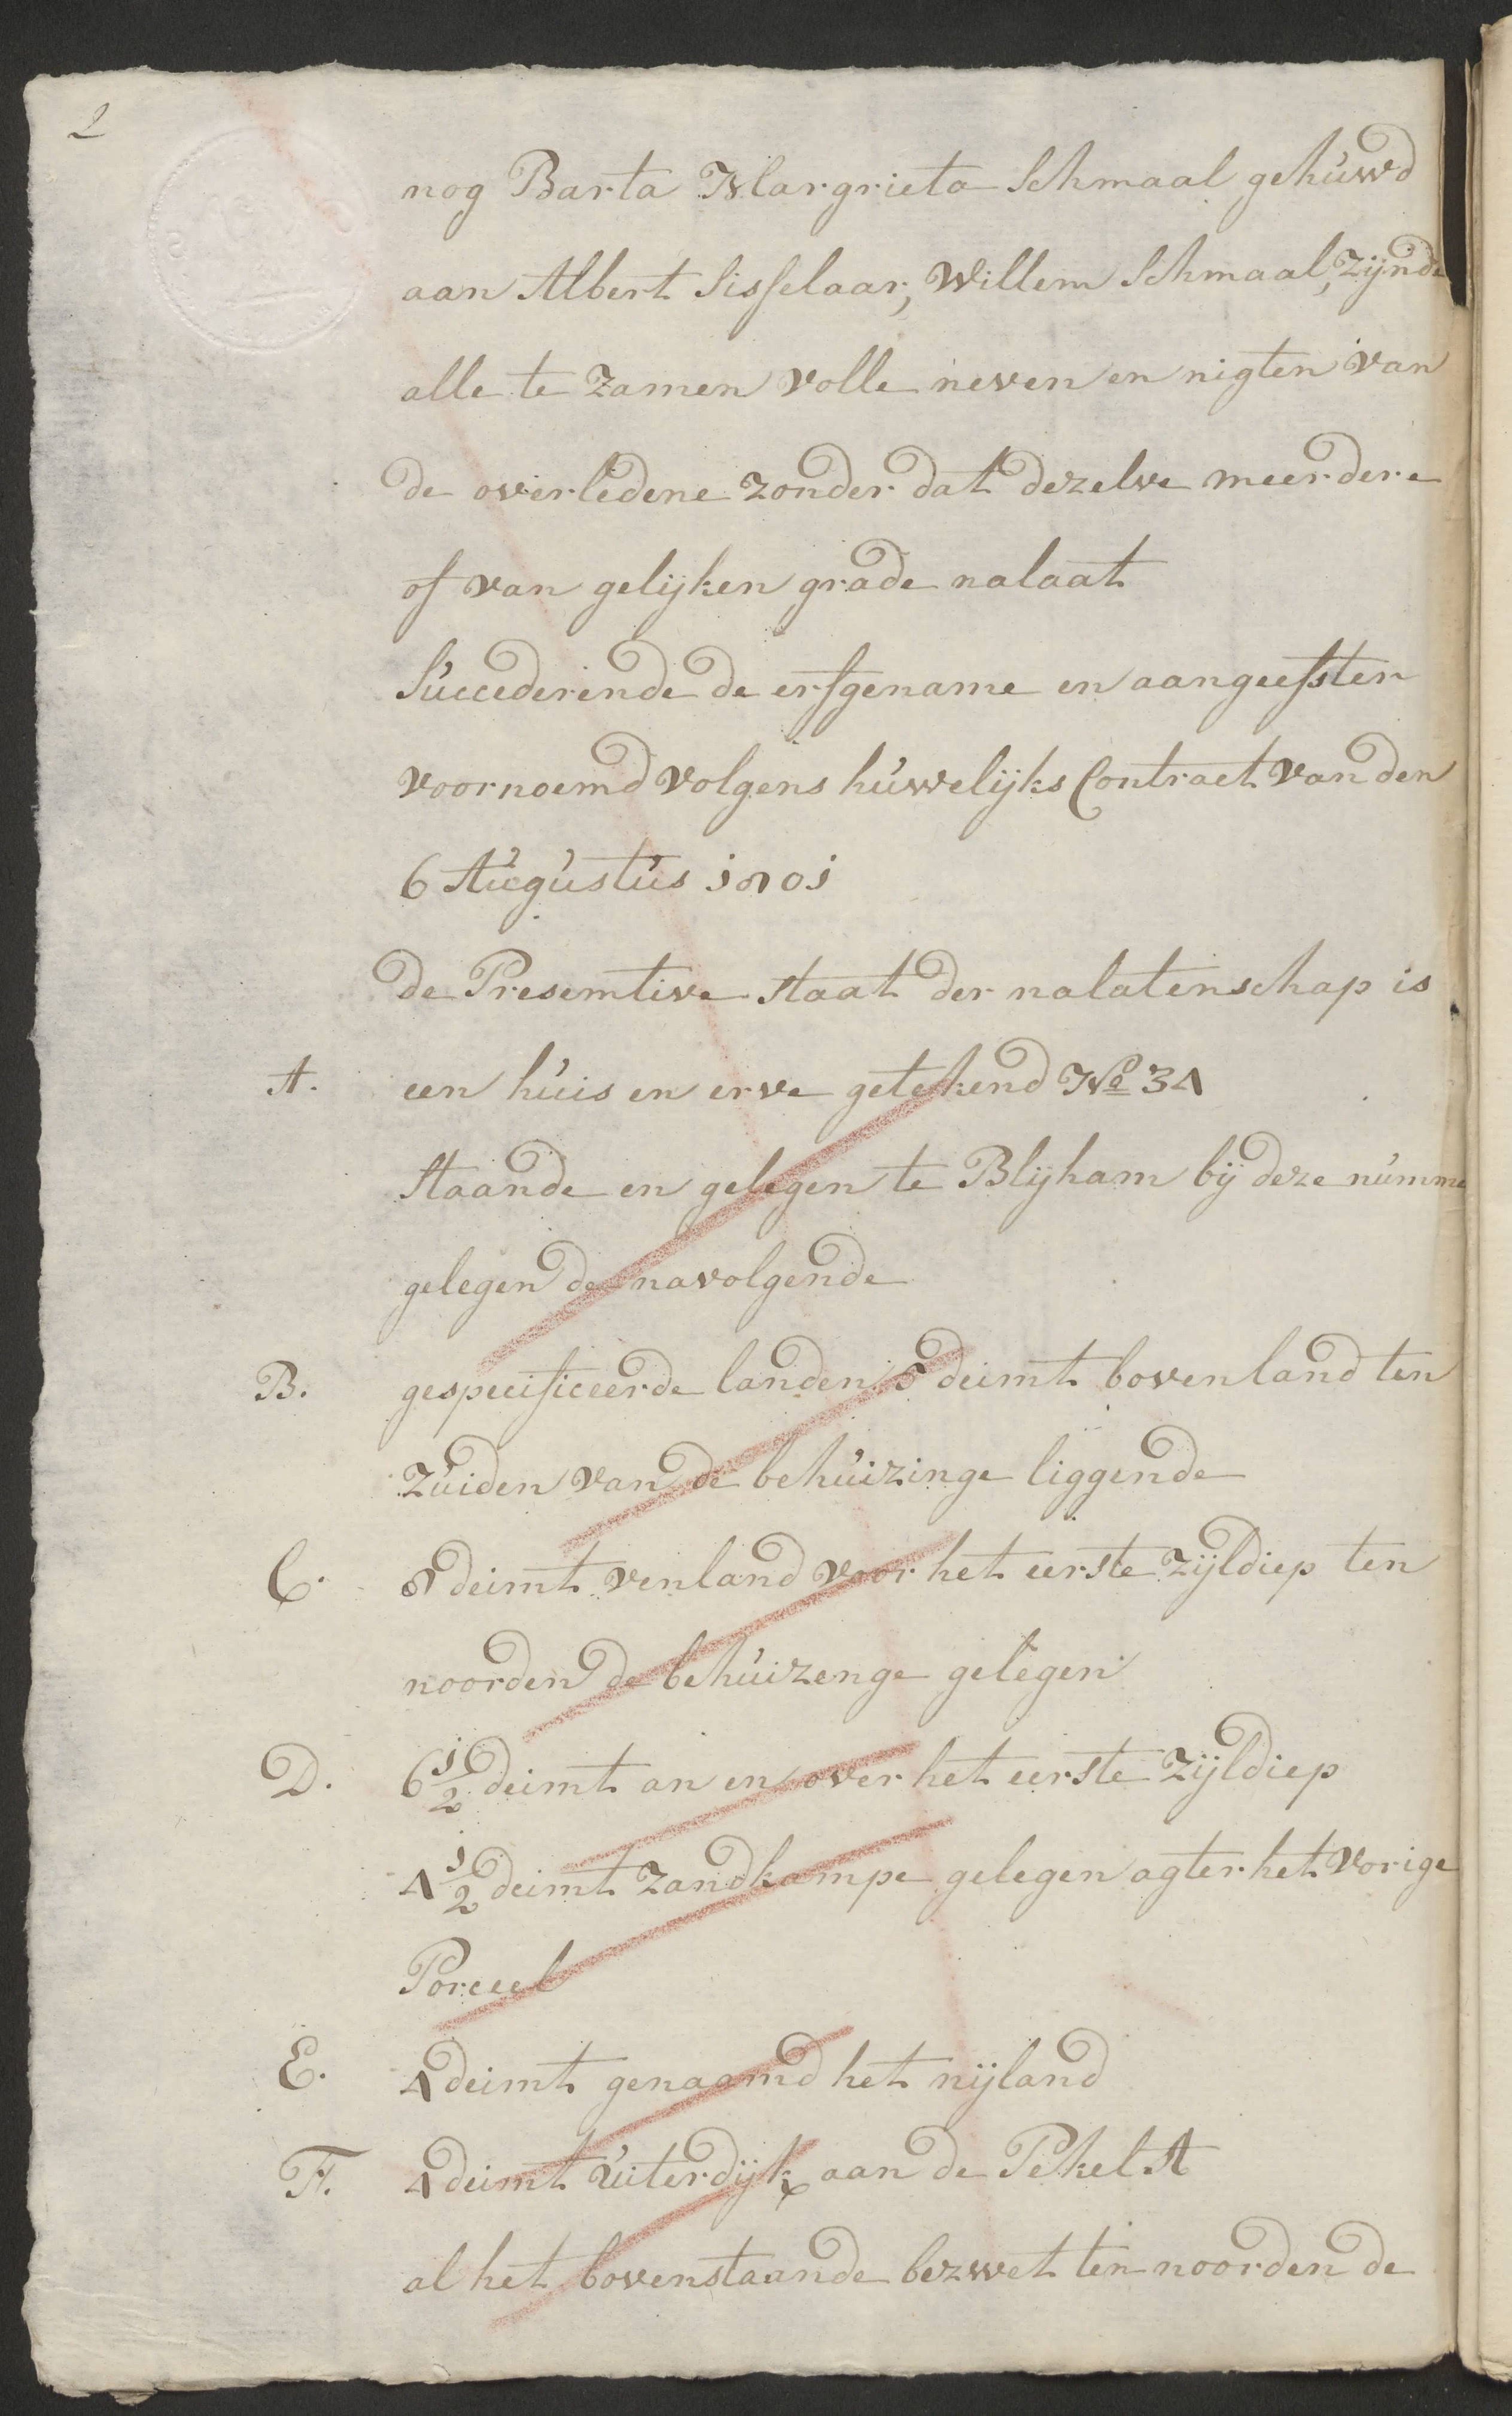 2
nog Barta Margrieta Schmaal gehuwd
aan Albert Sisselaar, Willem Schmaal, zijnde
alle te zamen volle neven en nigten van
de overledene zonder dat dezelve meerdere
of van gelijken grade nalaat
Succederende de erfgename en aangeefster
voornoemd volgens huwelijks Contract van den
6 Augustus 1801
de Presemtive staat der nalatenschap is
A. een huis en erve getekend No 34
staande en gelegen te Blijham bij deze numme
gelegen de navolgende
B. gespecificeerde landen deimt bovenland ten
Zuiden van de behuizinge liggende
C. 8 deimt venland voor het eerste zijldiep ten
noorden de behuizenge gelegen
D. 6 1/2 deimt an en over het eerste zijldiep
4 1/2 deimt zandkampe gelegen agter het vorige
Porceel
E. 4 deimt genaamd het nijland
F. 4 deimt uiterdijk aan de Pekel A
al het bovenstaande bezwet ten noorden de